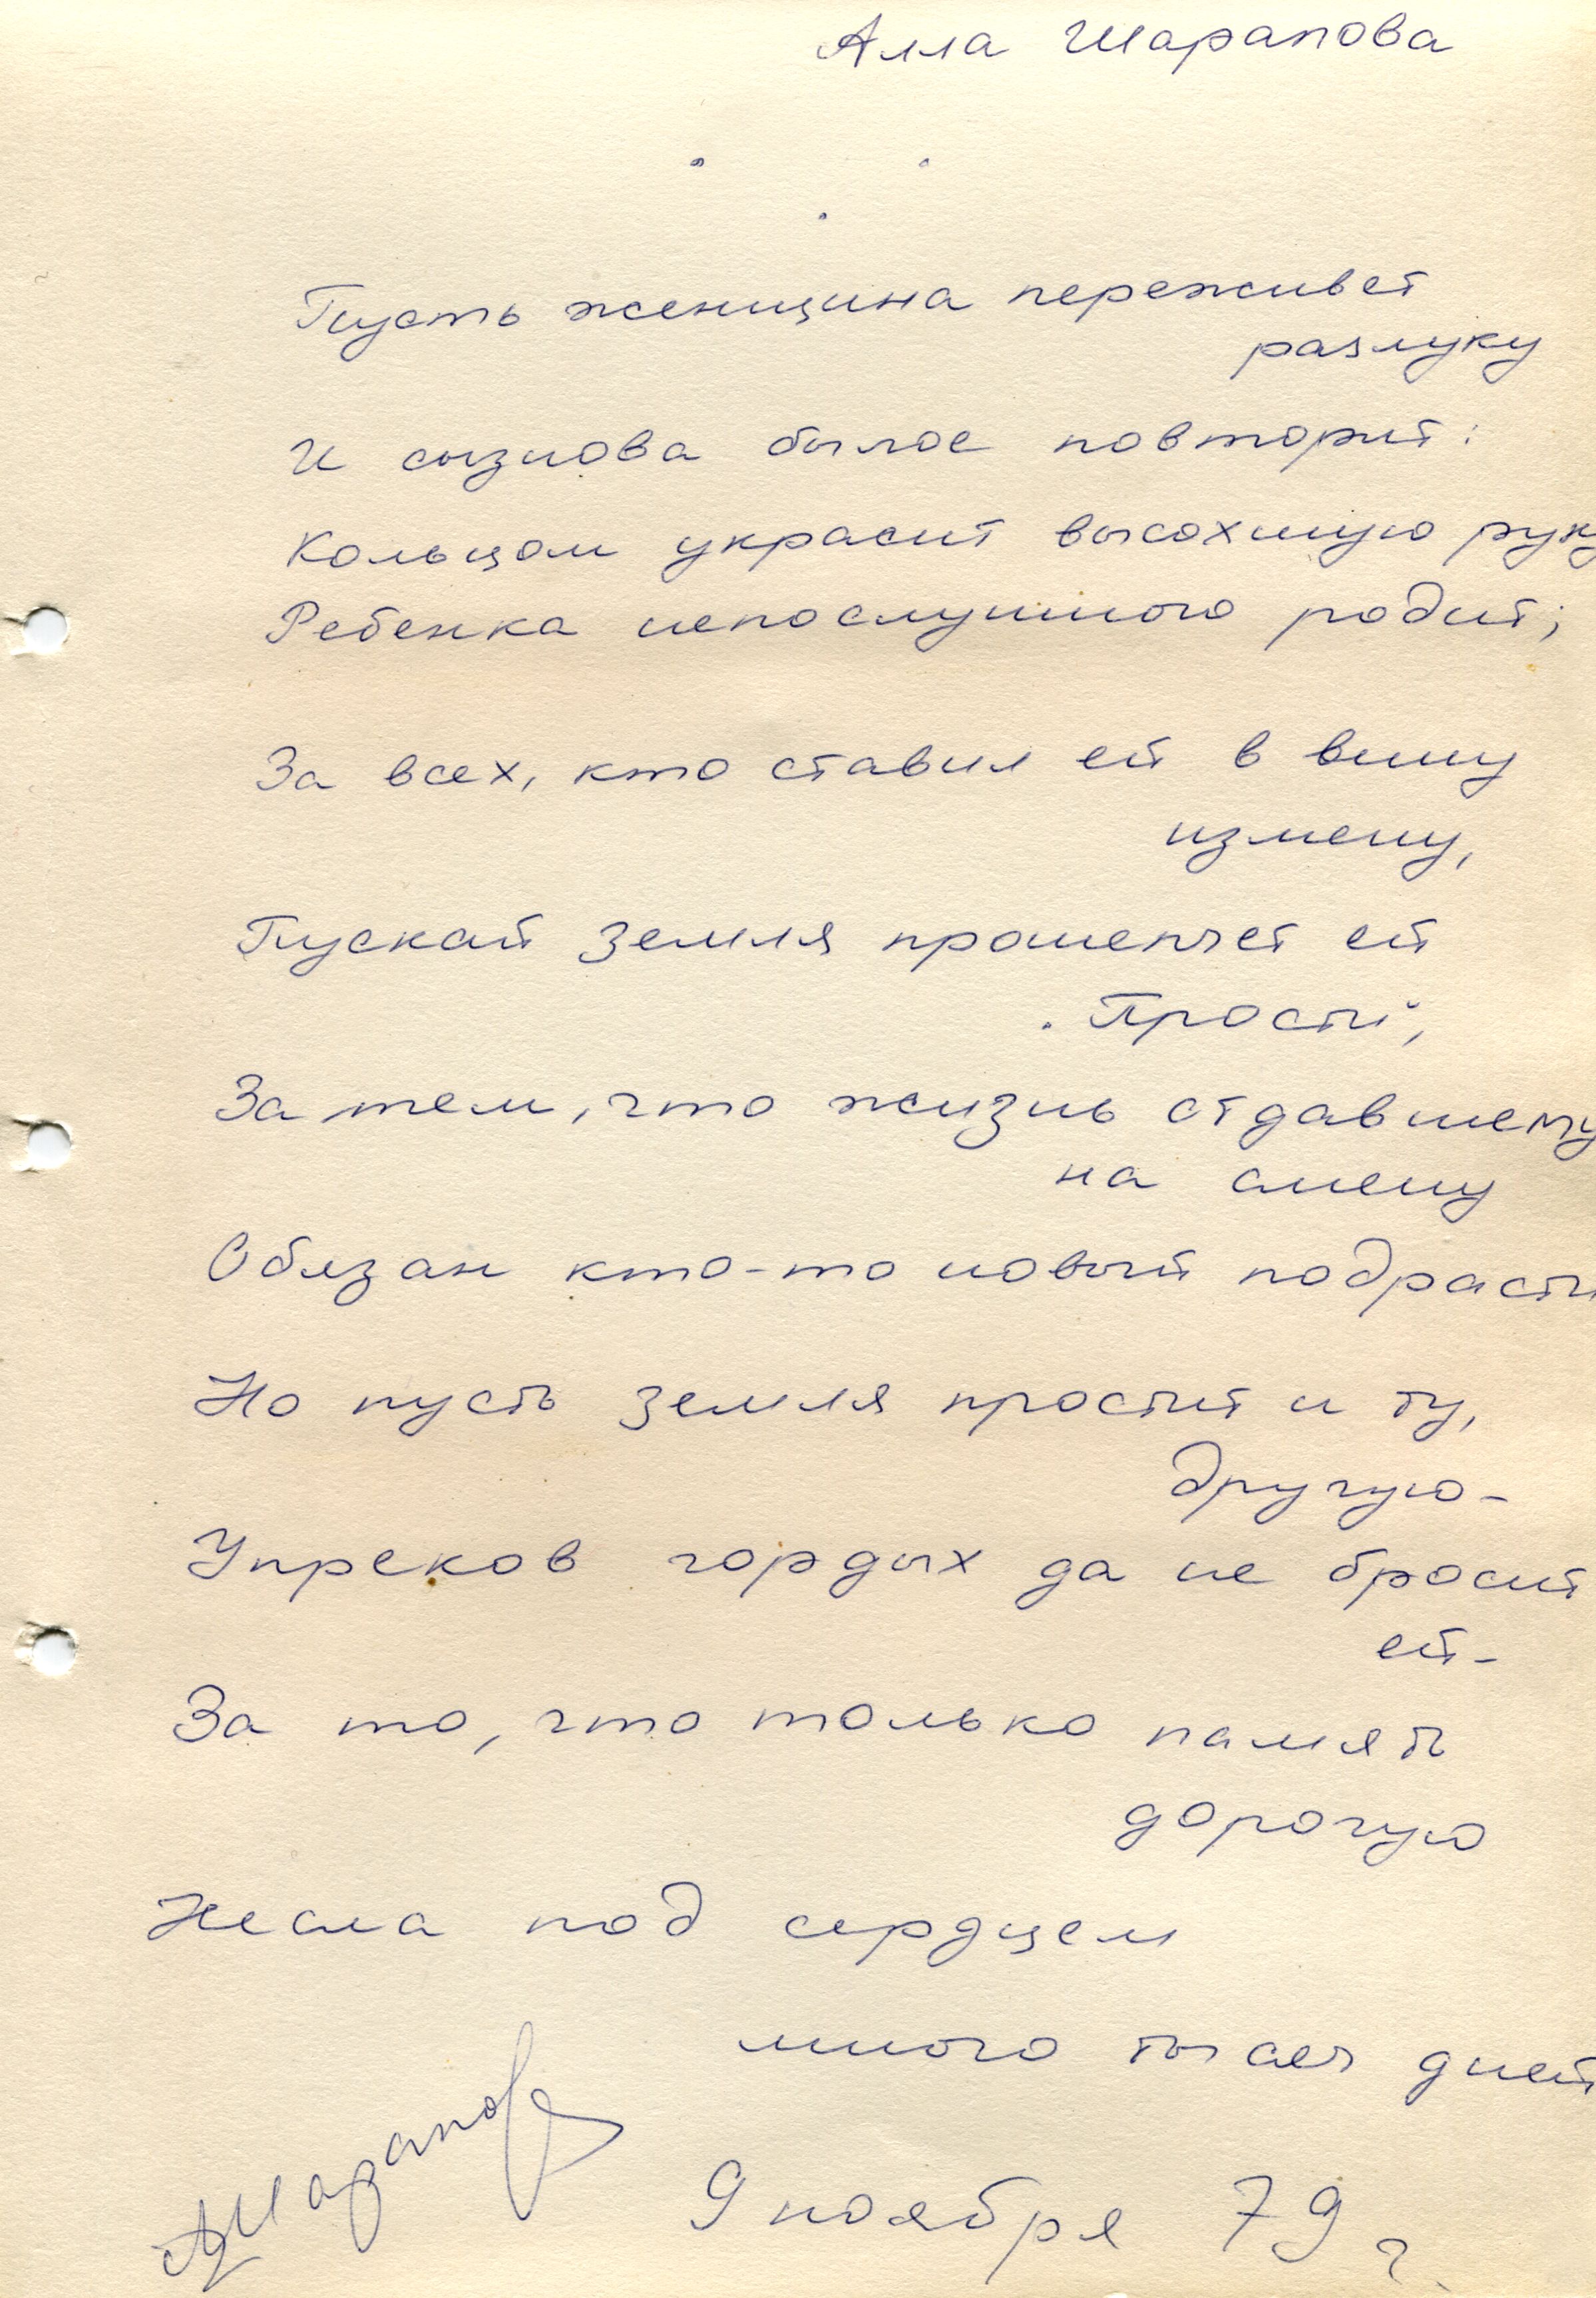 Алла Шарапова
Пусть женщина переживет
разлуку
И сызнова былое повторит:
Кольцом украсит высохшую руку
Ребенка непослушного родит;
За всех, кто ставил ей в вину
измену,
Пускай земля прошепчет ей
"Прости",
За тем, что жизнь отдавшему
на смену
Обязан кто-то новый подрасти
Но пусть земля простит и ту,
другую-
Упреков гордых да не бросит
ей-
За то, что только память
дорогую
Несла под сердцем
много тысяч дней
АШарапова
9 ноября 79 г.